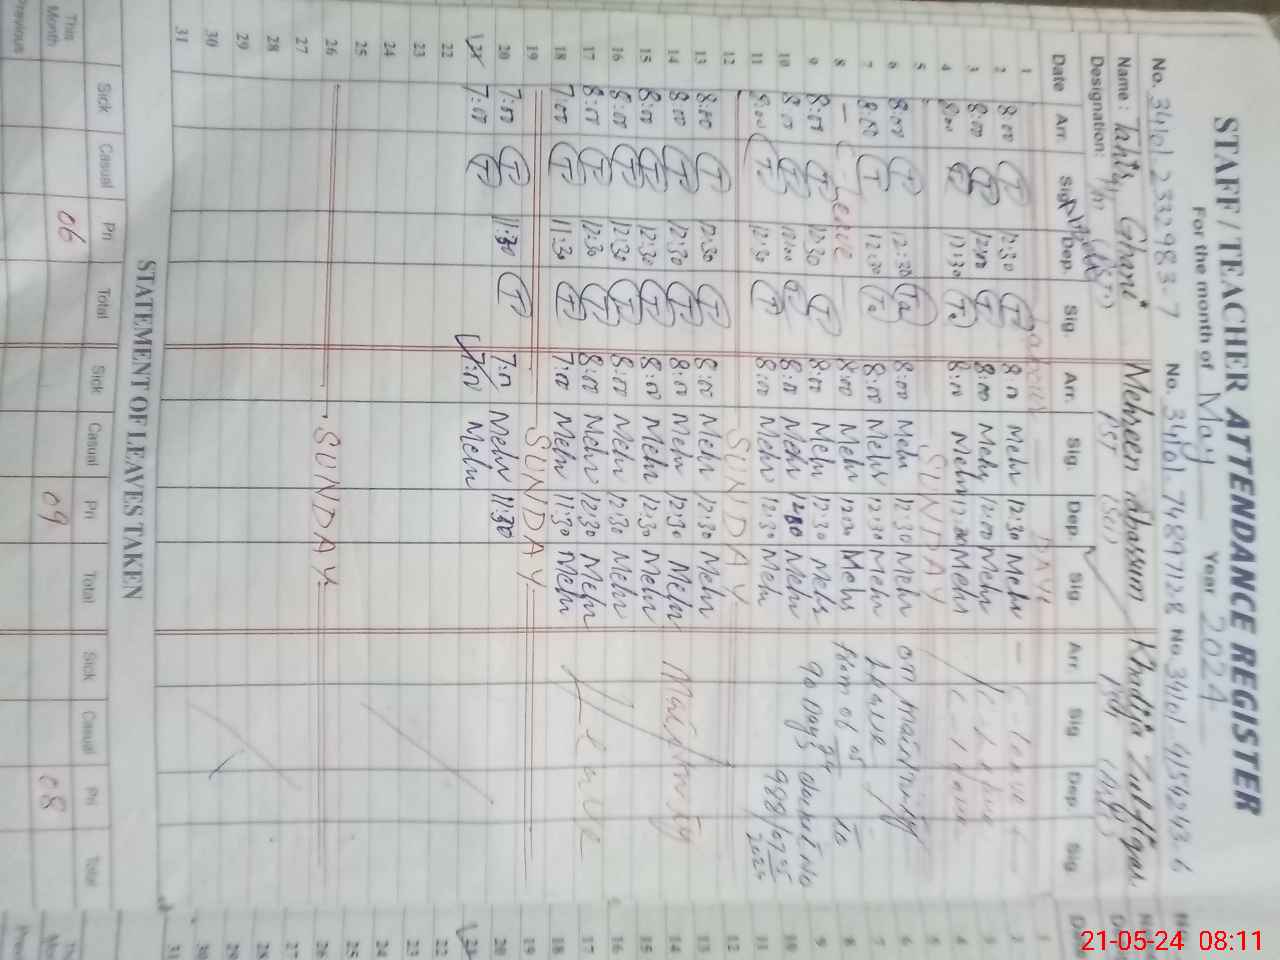 STAFF / TEACHER ATTENDANCE REGISTER
For the month of May Year 2024
No. 34101.2332983.7 No. 34101.74897128 No. 34101.4154243.6
Name: Tahir Ghani Mehreen Tabassum Khadija Zulfiqar
Designation: PST
Date Arr. Sig. Dep. Sig. Arr. Sig. Dep. Sig. Arr. Sig. Dep. Sig.
1 DAY
2 8:00 T 12:30 T 8:00 Mehr 12:30 Mehr — C-leave —
3 8:00 T 12:00 T 8:00 Mehr 12:00 Mehr C-leave
4 8:00 T 12:30 8:00 Mehr 12:30 Mehr C-leave
5 SUNDAY
6 8:00 T 12:30 8:00 Mehr 12:30 Mehr on maternity
7 8:00 T 12:30 8:00 Mehr 12:30 Mehr leave
8 — C-leave 8:00 Mehr 12:00 Mehr from 06 05 24 to
9 8:00 T 12:30 T 8:00 Mehr 12:30 Mehr 90 Days
10 8:00 T 12:00 T 8:00 Mehr 12:00 Mehr
11 8:00 T 12:30 T 8:00 Mehr 12:30 Mehr
12 SUNDAY
13 8:00 T 12:30 T 8:00 Mehr 12:30 Mehr
14 8:00 T 12:30 T 8:00 Mehr 12:30 Mehr Maternity
15 8:00 T 12:30 T 8:00 Mehr 12:30 Mehr
16 8:00 T 12:30 T 8:00 Mehr 12:30 Mehr
17 8:00 T 12:30 T 8:00 Mehr 12:30 Mehr Leave
18 7:00 T 11:30 T 7:00 Mehr 11:30 Mehr
19 SUNDAY
20 7:00 T 11:30 T 7:00 Mehr 11:30
21 7:00 T 7:00 Mehr
22
23
24
25
26 SUNDAY
27
28
29
30
31
STATEMENT OF LEAVES TAKEN
Sick Casual Pri Total Sick Casual Pri Total Sick Casual Pri Total
This Month 06 09 08
Previous
21-05-24 08:11